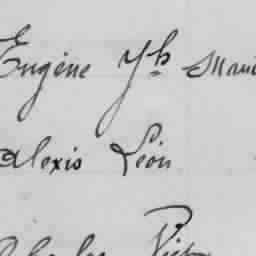 Eugène Jh Marie
Alexis Léon
Charles Vict